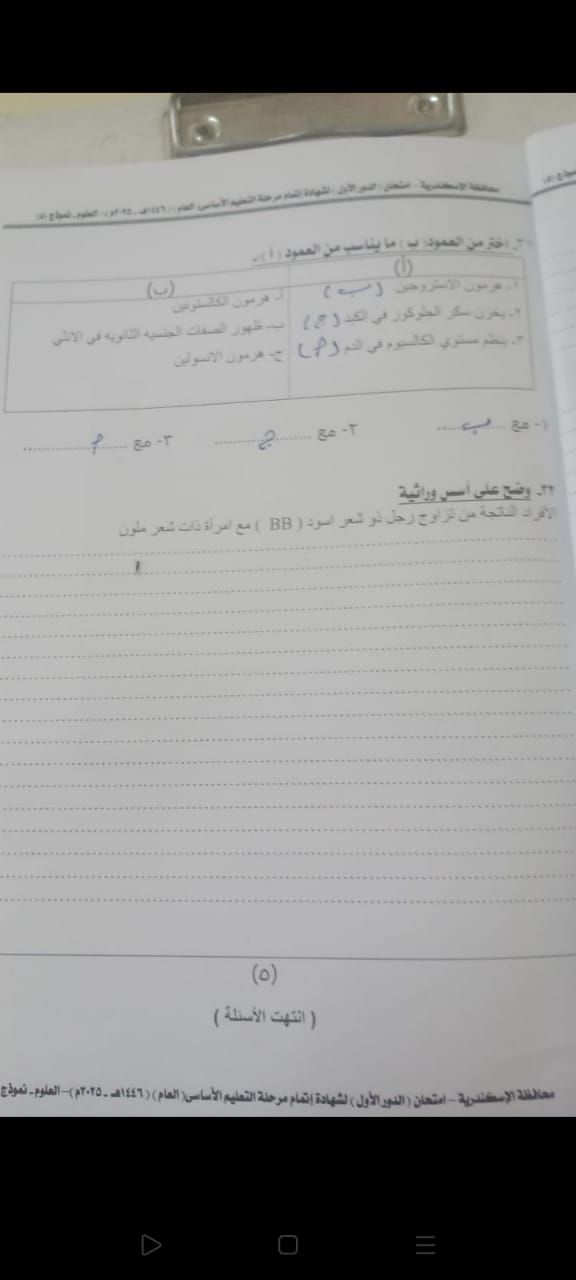 محافظة الإسكندرية - امتحان (الدور الأول) لشهادة إتمام مرحلة التعليم الأساسى (العام) (١٤٤٦هـ ـ ٢٠٢٥م) - العلوم ـ نموذج (٥)
نموذج (٥)
٣١ـ اختر من العمود( ب ) ما يناسب من العمود ( أ ) :ـ
(أ) (ب)
١ـ هرمون الاستروجين (ب) أ- هرمون الكالسيتونين
٢ـ يخزن سكر الجلوكوز في الكبد (ج) ب- ظهور الصفات الجنسيه الثانويه في الانثي
٣ـ ينظم مستوي الكالسيوم في الدم (أ) ج- هرمون الانسولين
١- مع ...ب... ٢- مع ...ج... ٣- مع ...أ...
٣٢ـ وضح على أسس وراثية
الأفراد الناتجة من تزاوج رجل ذو شعر اسود ( BB ) مع امرأة ذات شعر ملون
(٥)
( انتهت الأسئلة )
محافظة الإسكندرية - امتحان (الدور الأول) لشهادة إتمام مرحلة التعليم الأساسى( العام) (١٤٤٦هـ ـ ٢٠٢٥م) - العلوم ـ نموذج